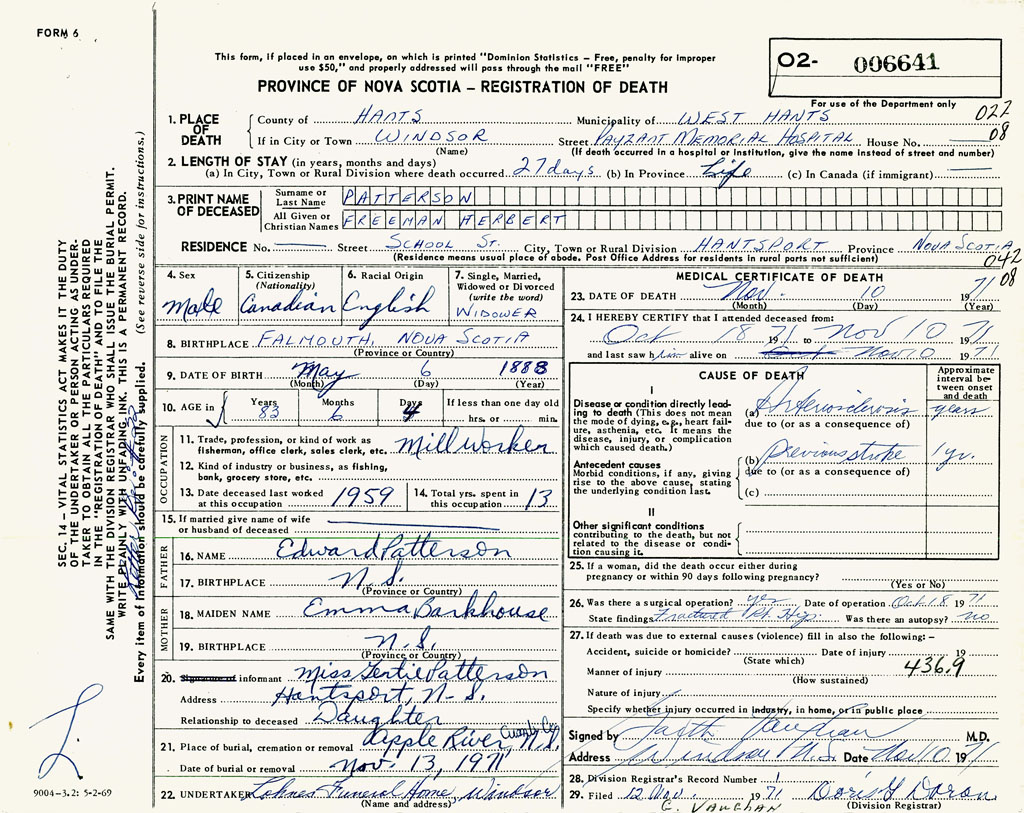 FORM 6
This form, if placed in an envelope, on which is printed "Dominion Statistics – Free, penalty for improper
use $50," and properly addressed will pass through the mail "FREE"
PROVINCE OF NOVA SCOTIA – REGISTRATION OF DEATH
02- 006641
For use of the Department only
022
08
1. PLACE OF DEATH
County of HANTS Municipality of WEST HANTS
If in City or Town WINDSOR Street PAYZANT MEMORIAL HOSPITAL House No.
(Name) (If death occurred in a hospital or institution, give the name instead of street and number)
2. LENGTH OF STAY (in years, months and days)
(a) In City, Town or Rural Division where death occurred 27 days (b) In Province Life (c) In Canada (if immigrant)
3. PRINT NAME OF DECEASED
Surname or Last Name PATTERSON
All Given or Christian Names FREEMAN HERBERT
RESIDENCE No. Street SCHOOL ST. City, Town or Rural Division HANTSPORT Province NOVA SCOTIA
(Residence means usual place of abode. Post Office Address for residents in rural parts not sufficient)
042
08
4. Sex Male
5. Citizenship (Nationality) Canadian
6. Racial Origin English
7. Single, Married, Widowed or Divorced (write the word) WIDOWER
8. BIRTHPLACE FALMOUTH, NOVA SCOTIA
(Province or Country)
9. DATE OF BIRTH May 6 1888
(Month) (Day) (Year)
10. AGE in Years 83 Months 6 Days 4 If less than one day old hrs. or min.
OCCUPATION
11. Trade, profession, or kind of work as fisherman, office clerk, sales clerk, etc. Mill worker
12. Kind of industry or business, as fishing, bank, grocery store, etc.
13. Date deceased last worked at this occupation 1959
14. Total yrs. spent in this occupation 13
15. If married give name of wife or husband of deceased
FATHER
16. NAME Edward Patterson
17. BIRTHPLACE N.S.
(Province or Country)
MOTHER
18. MAIDEN NAME Emma Barkhouse
19. BIRTHPLACE N.S.
(Province or Country)
20. informant Miss Gertie Patterson
Address Hantsport, N-S.
Relationship to deceased Daughter
21. Place of burial, cremation or removal Apple River, Cumb. Co. N.S.
Date of burial or removal Nov. 13, 1971
22. UNDERTAKER Lohnes Funeral Home, Windsor
(Name and address)
MEDICAL CERTIFICATE OF DEATH
23. DATE OF DEATH Nov. 10 1971
(Month) (Day) (Year)
24. I HEREBY CERTIFY that I attended deceased from:
Oct 18 1971 to Nov 10 1971
and last saw him alive on Nov 10 1971
CAUSE OF DEATH
Approximate interval between onset and death
I
Disease or condition directly leading to death (This does not mean the mode of dying, e.g., heart failure, asthenia, etc. It means the disease, injury, or complication which caused death.)
(a) Arteriosclerosis years
due to (or as a consequence of)
Antecedent causes
Morbid conditions, if any, giving rise to the above cause, stating the underlying condition last.
(b) Previous stroke 1 yr.
due to (or as a consequence of)
(c)
II
Other significant conditions
contributing to the death, but not related to the disease or condition causing it.
25. If a woman, did the death occur either during pregnancy or within 90 days following pregnancy?
(Yes or No)
26. Was there a surgical operation? yes Date of operation Oct. 18 1971
State findings Fractured Rt. Hip Was there an autopsy? no
27. If death was due to external causes (violence) fill in also the following: –
Accident, suicide or homicide? Date of injury 19
(State which)
Manner of injury 436.9
(How sustained)
Nature of injury
Specify whether injury occurred in industry, in home, or in public place
Signed by Garth Vaughan M.D.
Address Windsor N.S. Date Nov 10 1971
28. Division Registrar's Record Number 1
29. Filed 12 Nov. 1971 Doris G Doran
(Division Registrar)
G. VAUGHAN
SEC. 14 – VITAL STATISTICS ACT MAKES IT THE DUTY
OF THE UNDERTAKER OR PERSON ACTING AS UNDER-
TAKER TO OBTAIN ALL THE PARTICULARS REQUIRED
IN THE "REGISTRATION OF DEATH" AND TO FILE THE
SAME WITH THE DIVISION REGISTRAR WHO SHALL ISSUE THE BURIAL PERMIT.
WRITE PLAINLY WITH UNFADING INK. THIS IS A PERMANENT RECORD.
Every item of information should be carefully supplied. (See reverse side for instructions.)
L.
9004-3.2: 5-2-69